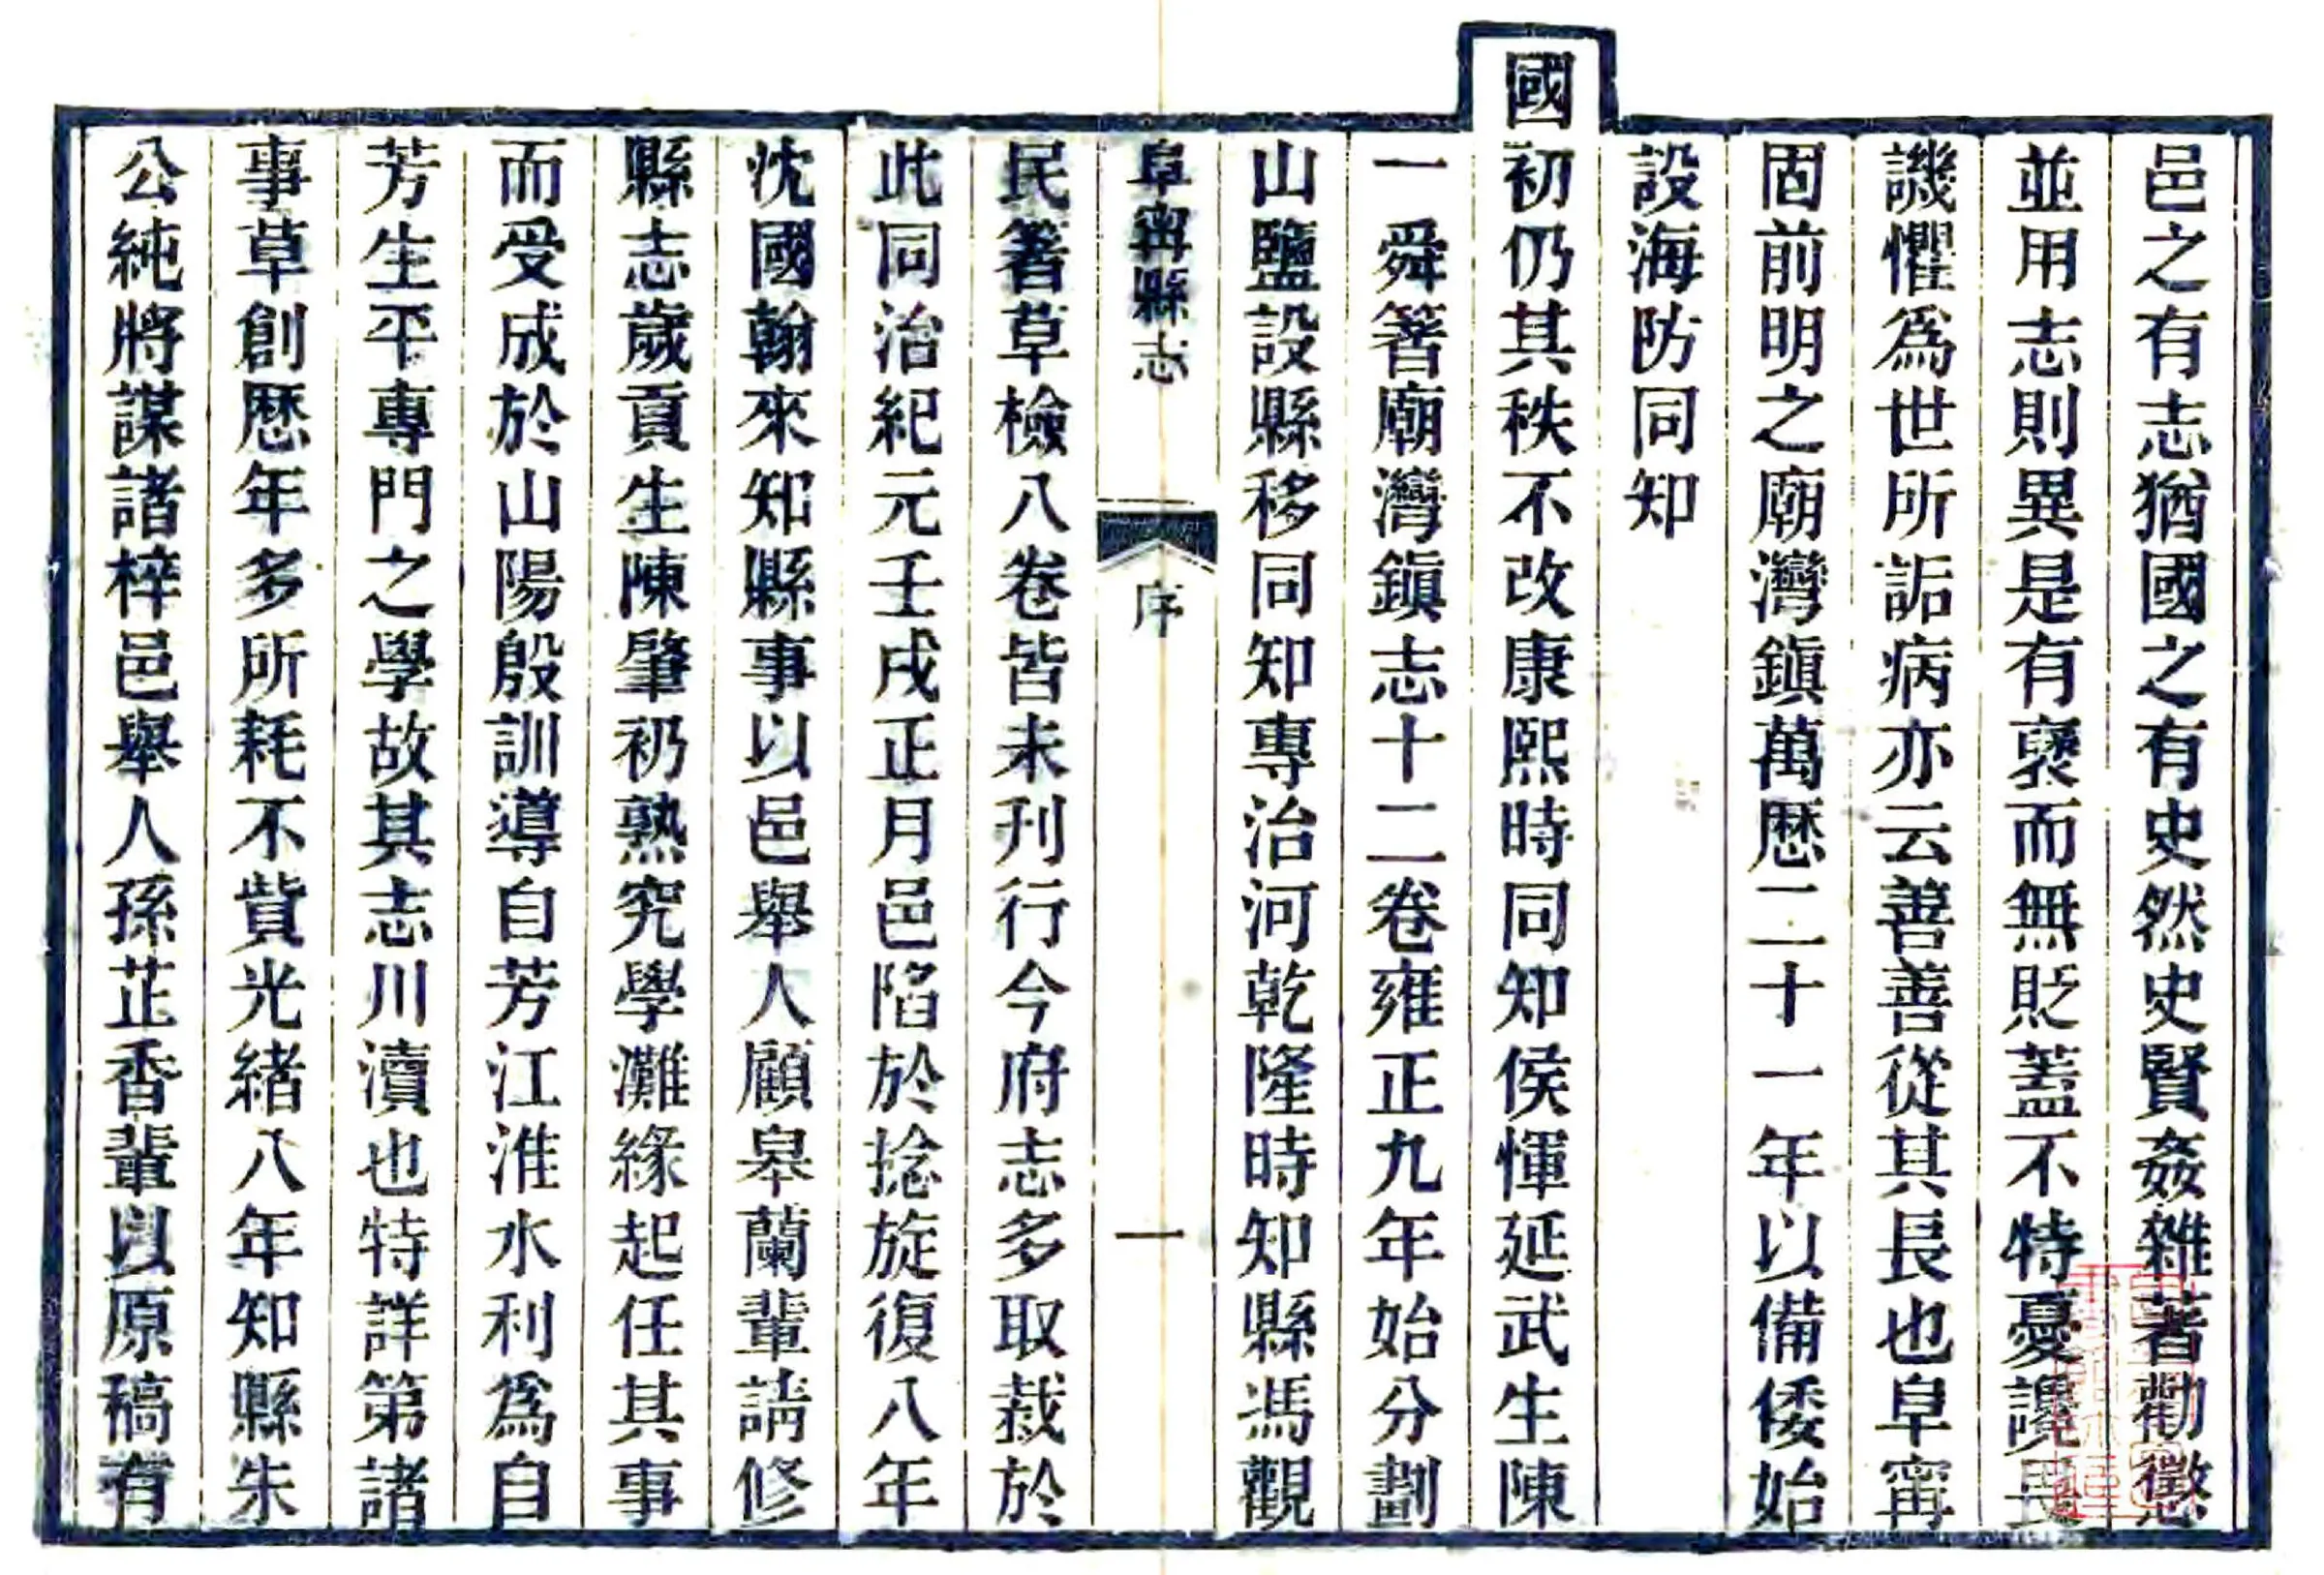 邑之有志猶國之有史然史賢姦雜著勸懲
並用志則異是有褒而無貶蓋不特憂讒畏
譏懼爲世所詬病亦云善善從其長也阜甯
固前明之廟灣鎭萬厯二十一年以備倭始
設海防同知
國初仍其秩不改康熙時同知侯惲延武生陳
一舜箸廟灣鎭志十二卷雍正九年始分劃
山鹽設縣移同知專治河乾隆時知縣馮觀
阜甯縣志
序
一
民箸草檢八卷皆未刊行今府志多取裁於
此同治紀元壬戌正月邑陷於捻旋復八年
沈國翰來知縣事以邑舉人顧皋蘭輩請修
縣志歲貢生陳肇礽熟究學灘緣起任其事
而受成於山陽殷訓導自芳江淮水利爲自
芳生平專門之學故其志川瀆也特詳第諸
事草創厯年多所耗不貲光緒八年知縣朱
公純將謀諸梓邑舉人孫芷香輩以原稿有